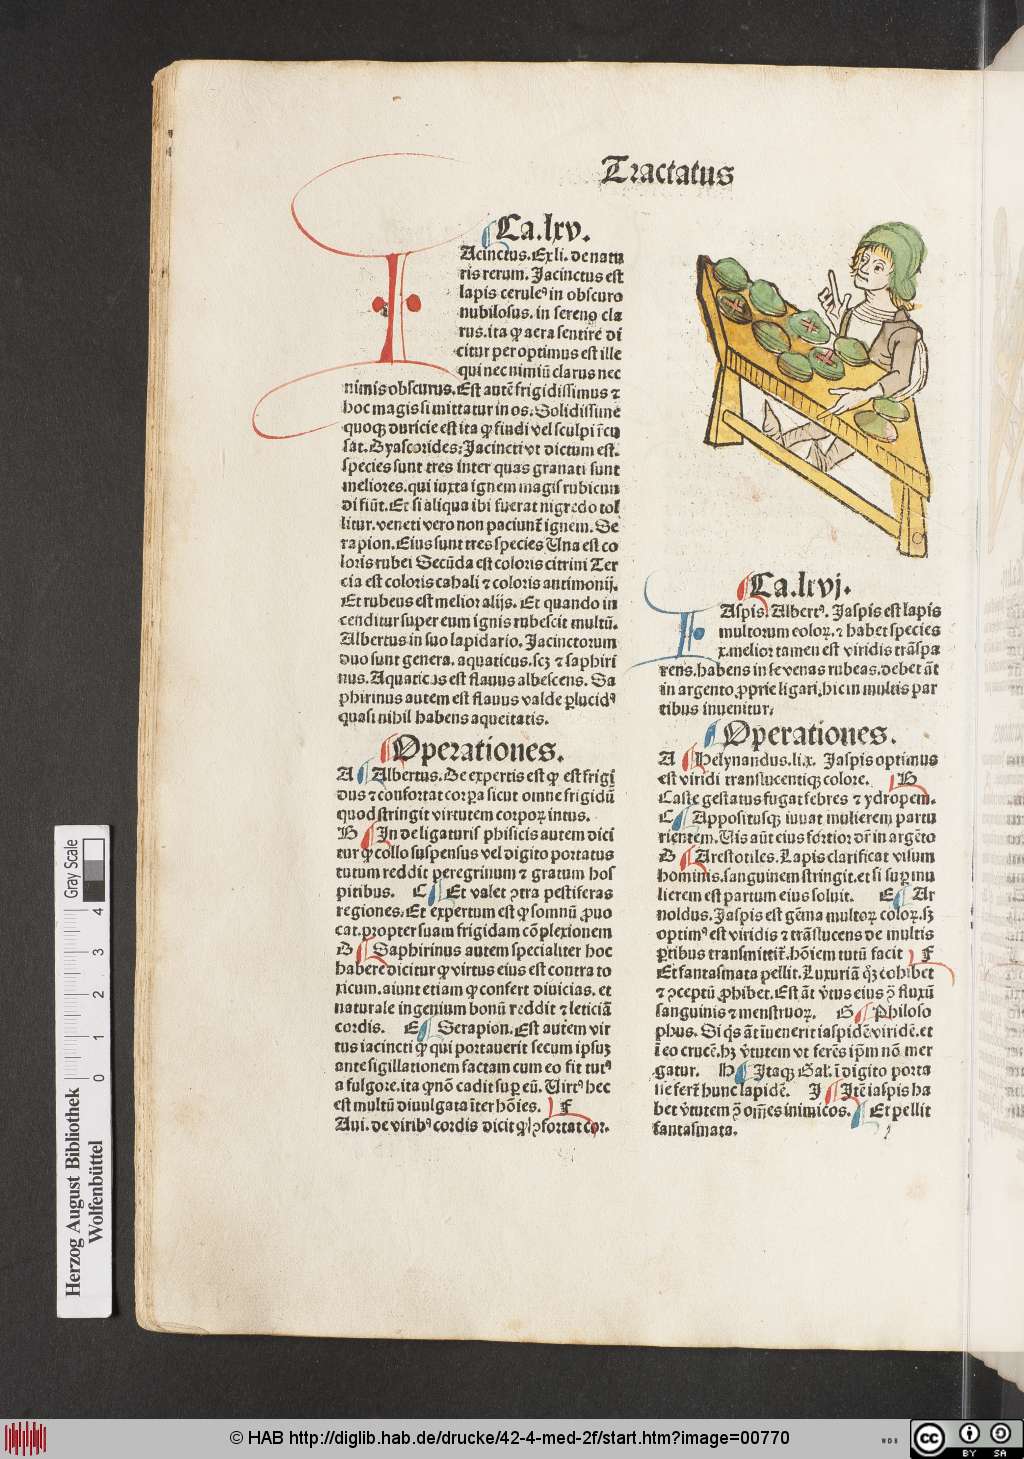 Tractatus
Ca.lxv.
IAcinctus. Ex li. de natu
ris rerum. Jacinctus est
lapis ceruleꝰ in obscuro
nubilosus. in sereno cla
rus. ita ꝙ aera sentire di
citur per optimus est ille
qui nec nimiū clarus nec
nimis obscurus. Est autē frigidissimus ⁊
hoc magis si mittatur in os. Solidissime
quoqꝫ duricie est ita ꝙ findi vel sculpi recu
sat. Dyascorides. Jacincti vt dictum est.
species sunt tres inter quas granati sunt
meliores. qui iuxta ignem magis rubicun
di fiūt. Et si aliqua ibi fuerat nigredo tol
litur. veneti vero non paciunt̄ ignem. Se
rapion. Eius sunt tres species Una est co
loris rubei Secūda est coloris citrini Ter
cia est coloris cahali ⁊ coloris antimonij.
Et rubeus est melior alijs. Et quando in
cenditur super eum ignis rubescit multū.
Albertus in suo lapidario. Jacinctorum
duo sunt genera. aquaticus. scꝫ ⁊ saphiri
nus. Aquaticus est flauus albescens. Sa
phirinus autem est flauus valde ꝑlucidꝰ
quasi nihil habens aqueitatis.
Operationes.
A Albertus. De expertis est ꝙ est frigi
dus ⁊ confortat corꝑa sicut omne frigidū
quod stringit virtutem corpoꝝ intus.
B In de ligaturis phisicis autem dici
tur ꝙ collo suspensus vel digito portatus
tutum reddit peregrinum ⁊ gratum hos
pitibus. C Et valet ꝯtra pestiferas
regiones. Et expertum est ꝙ somnū ꝓuo
cat. propter suam frigidam cōplexionem
D Saphirinus autem specialiter hoc
habere dicitur ꝙ virtus eius est contra to
xicum. aiunt etiam ꝙ confert diuicias. et
naturale ingenium bonū reddit ⁊ leticiā
cordis. E Serapion. Est autem vir
tus iacincti ꝙ qui portauerit secum ipsuꝫ
ante sigillationem factam cum eo fit tutꝰ
a fulgore. ita ꝙ nō cadit suꝑ eū. Virtꝰ hec
est multū diuulgata īter hōies. F
Aui. de viribꝰ cordis dicit ꝙ ꝯfortat cor.
Ca.lxvj.
IAspis. Albertꝰ. Jaspis est lapis
multorum coloꝝ. ⁊ habet species
x. melior tamen est viridis trāspa
rens. habens in se venas rubeas. debet āt
in argento ꝓprie ligari, hic in multis par
tibus inuenitur.
Operationes.
A Helynandus. li.x. Jaspis optimus
est viridi translucentiqꝫ colore. B
Caste gestatus fugat febres ⁊ ydropem.
C Appositusqꝫ iuuat mulierem partu
rientem. Vis aūt eius fortior dr̄ in argēto
D Arestotiles. Lapis clarificat visum
hominis. sanguinem stringit. et si suꝑ mu
lierem est partum eius soluit. E Ar
noldus. Jaspis est gēma multoꝝ coloꝝ. sꝫ
optimꝰ est viridis ⁊ trāslucens de multis
ꝑtibus transmittit̄. hōiem tutū facit F
Et fantasmata pellit. Luxuriā qꝫ cohibet
⁊ ꝯceptū ꝓhibet. Est āt v̄tus eius ꝯ̄ fluxū
sanguinis ⁊ menstruoꝝ. G Philoso
phus. Si qͥs āt īuenerit iaspidē viridē. et
ī eo crucē. hꝫ v̄tutem vt ferēs ip̄m nō mer
gatur. H Itaqꝫ Gal. ī digito porta
ue fert̄ hunc lapidē. I Itē iaspis ha
bet v̄tutem ꝯ̄ om̄es inimicos. Et pellit
fantasmata.
Herzog August Bibliothek
Wolfenbüttel
0 1 2 3 4
Gray Scale
© HAB http://diglib.hab.de/drucke/42-4-med-2f/start.htm?image=00770
WDB
cc BY SA